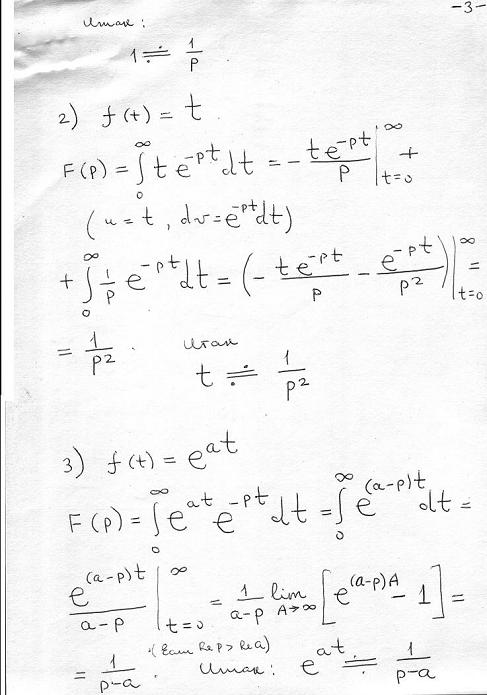 -3-
Итак:
1 ≓ 1/p
2) f(t) = t
F(p) = ∫₀^∞ t e^{-pt} dt = - te^{-pt}/p |_{t=0}^∞ +
(u = t, dv = e^{-pt} dt)
+ ∫₀^∞ 1/p e^{-pt} dt = (- te^{-pt}/p - e^{-pt}/p²) |_{t=0}^∞ =
= 1/p². Итак
t ≓ 1/p²
3) f(t) = e^{at}
F(p) = ∫₀^∞ e^{at} e^{-pt} dt = ∫₀^∞ e^{(a-p)t} dt =
e^{(a-p)t}/(a-p) |_{t=0}^∞ = 1/(a-p) lim_{A→∞} [e^{(a-p)A} - 1] =
(Если Re p > Re a)
= 1/(p-a). Итак: e^{at} ≓ 1/(p-a)